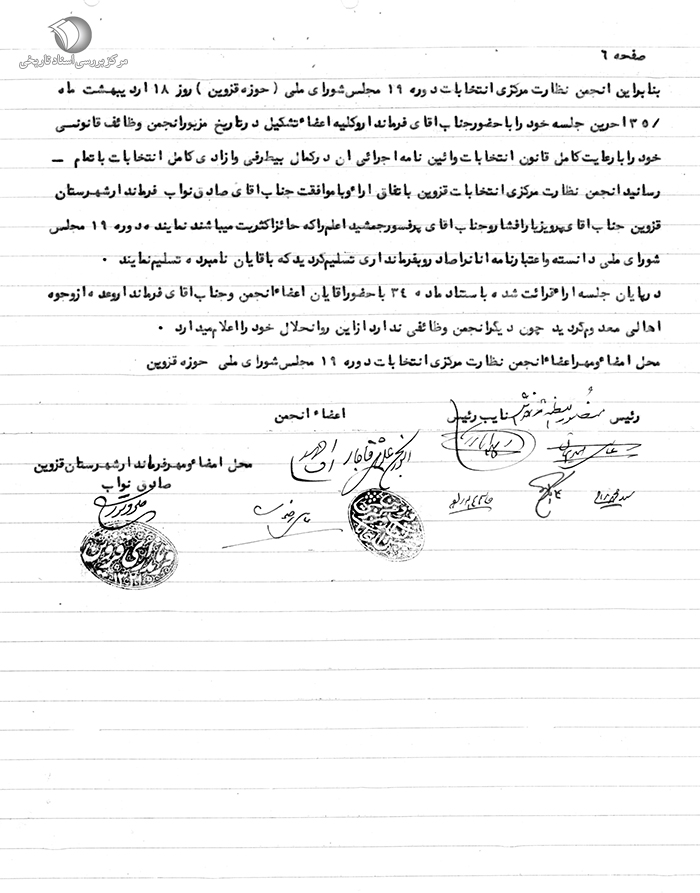 مرکز بررسی اسناد تاریخی
صفحه ٦
بنابراین انجمن نظارت مرکزی انتخابات دوره ١٩ مجلس شورای ملی ( حوزه قزوین ) روز ١٨ اردیبهشت ماه
/٣٥ اخرین جلسه خود را با حضور جناب اقای فرماندار و کلیه اعضاء تشکیل در تاریخ مزبور انجمن وظائف قانونسی
خود را با رعایت کامل قانون انتخابات و ائین نامه اجرائی ان در کمال بیطرفی و ازادی کامل انتخابات با تعام ــ
رسانید انجمن نظارت مرکزی انتخابات قزوین با تفاق اراء و با موافقت جناب اقای صادق نواب فرماندار شهرستان
قزوین جناب اقای پرویز یار افشار و جناب اقای پرفسور جمشید اعلم را که حائز اکثریت میباشند نماینده دوره ١٩ مجلس
شورای ملی دانسته و اعتبارنامه انانرا صادر و بفرمانداری تسلیم گردید که باقایان نامبرده تسلیم نمایند ٠
در پایان جلسه اراء قرائت شده با ستناد ماده ٣٤ با حضور اقایان اعضاء انجمن و جناب اقای فرماندار و عده از وجوه
اهالی معدوم گردید چون دیگر انجمن وظائفی ندارد از این رو انحلال خود را اعلام میدارد ٠
محل امضاء و مهر اعضاء انجمن نظارت مرکزی انتخابات دوره ١٩ مجلس شورای ملی حوزه قزوین
رئیس نایب رئیس اعضاء انجمن
محل امضاء و مهر فرماندار شهرستان قزوین
صادق نواب